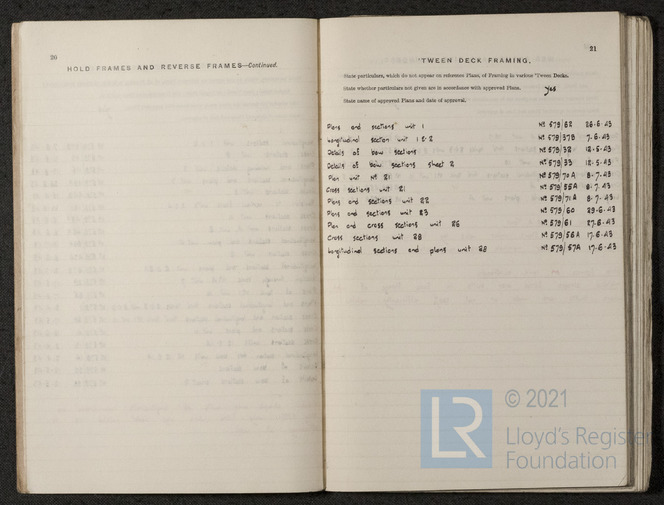 20
HOLD FRAMES AND REVERSE FRAMES—Continued.
21
'TWEEN DECK FRAMING.
State particulars, which do not appear on reference Plans, of Framing in various 'Tween Decks.
State whether particulars not given are in accordance with approved Plans. yes
State name of approved Plans and date of approval.
Plans and sections unit 1 Nº 579/62 26-6-43
Longitudinal section unit 1 & 2 Nº 579/37B 7.6.43
Details of bow sections Nº 579/32 12-5-43
Details of bow sections sheet 2 Nº 579/33 12-5-43
Plan unit Nº 21 Nº 579/70A 8-7-43
Cross sections unit 21 Nº 579/55A 8.7.43
Plans and sections unit 22 Nº 579/71A 8-7-43
Plans and sections unit 23 Nº 579/60 29-6-43
Plan and cross sections unit 26 Nº 579/61 27-6-43
Cross sections unit 28 Nº 579/56A 17-6-43
Longitudinal sections and plans unit 28 Nº 579/57A 17-6-43
LR © 2021
Lloyd's Register
Foundation